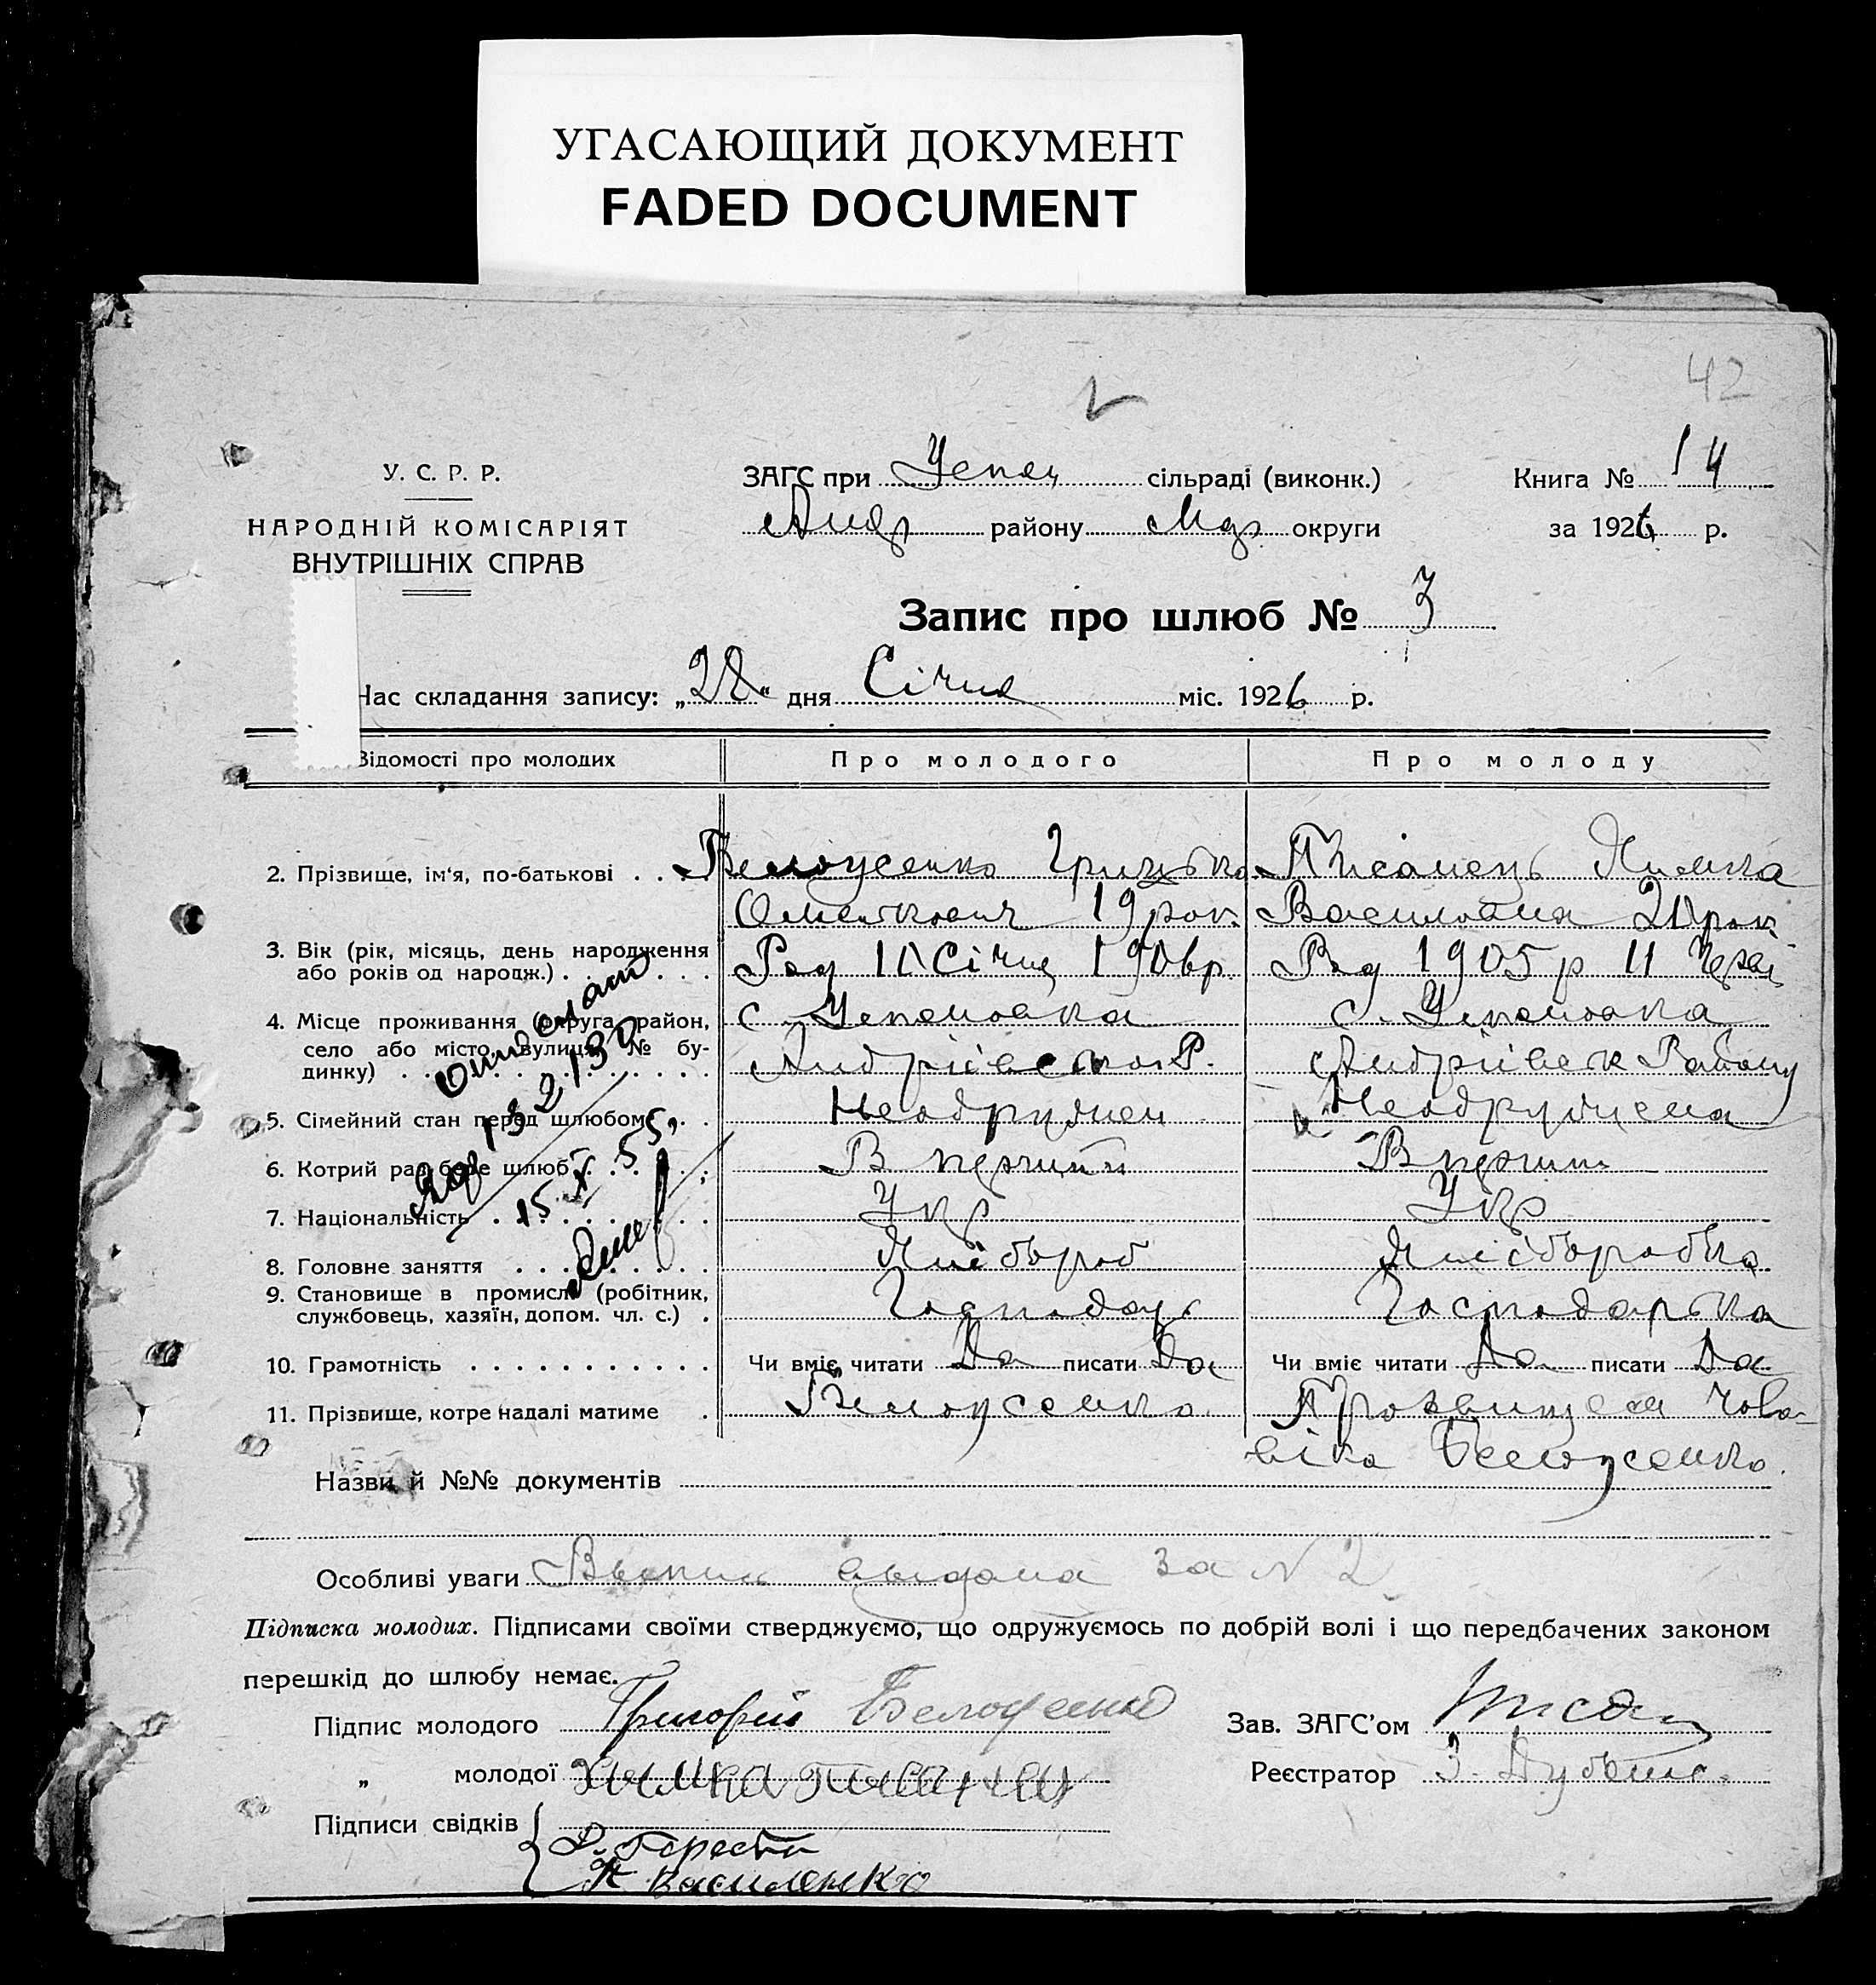 УГАСАЮЩИЙ ДОКУМЕНТ
FADED DOCUMENT
42
У. С. Р. Р.
НАРОДНІЙ КОМІСАРІЯТ
ВНУТРІШНІХ СПРАВ
ЗАГС при сільраді (виконк.)
Андр району Мар округи
Книга № 14
за 1926 р.
Запис про шлюб № 3
Час складання запису: „28“ дня Січня міс. 1926 р.
Відомості про молодих
Про молодого
Про молоду
2. Прізвище, ім'я, по-батькові . . . .
Белоусенко Грицько
Писанець Химка
Омелькович 19 рок.
Василовна 20 рок.
3. Вік (рік, місяць, день народження
або років од народж.) . . . . . .
Род 10 Січня 1906 р.
Род 1905 р 11
4. Місце проживання (округа, район,
село або місто, вулиця, № бу-
динку) . . . . . . . . . . . . .
с. Успеновка
Андріевско Р.
с. Успеновка
Андріівск Району
5. Сімейний стан перед шлюбом . . .
Неодружен
Неодружена
6. Котрий раз бере шлюб . . . . . .
В перший
В перший
7. Національність . . . . . . . . .
Укр
Укр
8. Головне заняття . . . . . . . .
Хліббороб
Хлібборобка
9. Становище в промислі (робітник,
службовець, хазяїн, допом. чл. с.) .
Господарь
Господарька
10. Грамотність . . . . . . . . . . .
Чи вміє читати Да писати Да
Чи вміє читати Да писати Да
11. Прізвище, котре надалі матиме .
Белоусенко
Прозвищем чоло-
віка Белоусенко.
Назви й №№ документів
Особливі уваги выдана за N 2
Підписка молодих. Підписами своїми стверджуємо, що одружуємось по добрій волі і що передбачених законом
перешкід до шлюбу немає.
Підпис молодого Григорій Белоусенко
Зав. ЗАГС'ом
„ молодої Химка Писанец
Реєстратор З.
Підписи свідків
Василенко